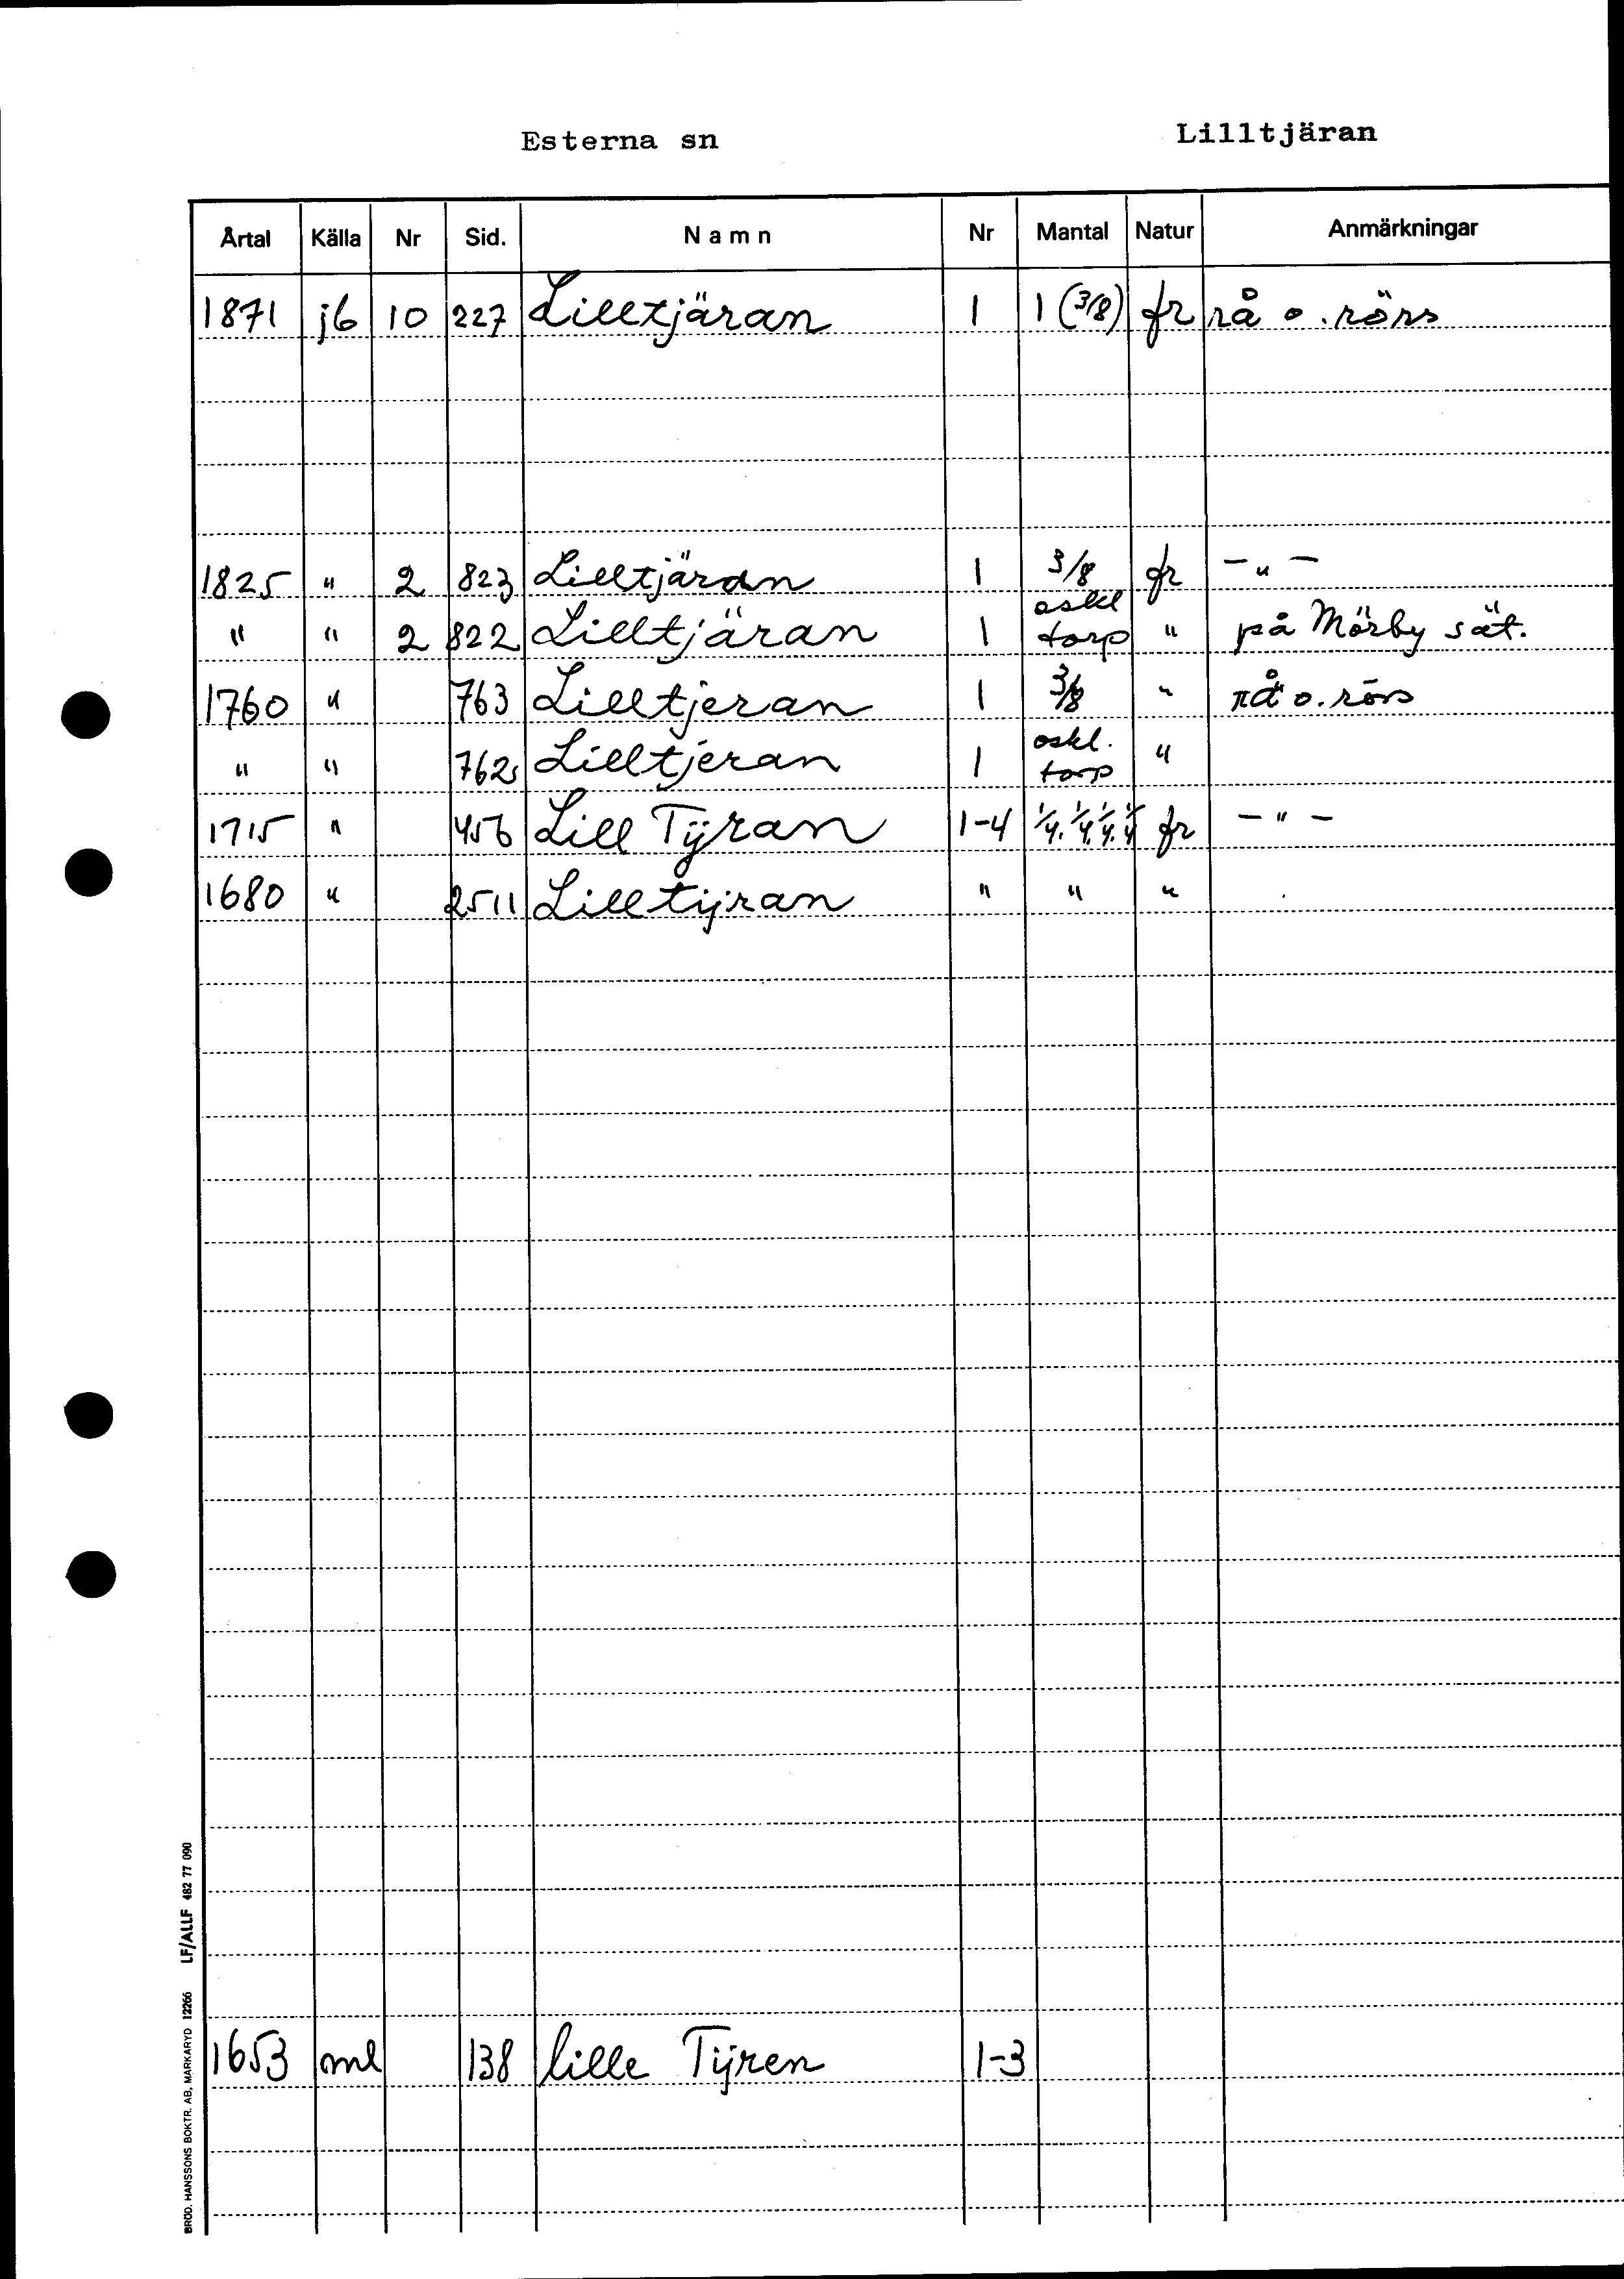 Esterna sn Lilltjäran
Årtal Källa Nr Sid. Namn Nr Mantal Natur Anmärkningar
1871 jb 10 227 Lilltjäran 1 1 (3/8) fr rå o. rörs
1825 " 2 823 Lilltjäran 1 3/8 fr - " -
" " 2 822 Lilltjäran 1 oskl torp " på Mörby sät.
1760 " 763 Lilltjeran 1 3/8 " rå o. rörs
" " 762 Lilltjeran 1 oskl. torp "
1715 " 456 Lill Tÿran 1-4 1/4. 1/4. 1/4. 1/4 fr - " -
1680 " 2511 Lilltÿran " " "
1653 ml 138 lille Tÿren 1-3
BRÖD. HANSSONS BOKTR. AB, MARKARYD 12266 LF/ALLF 482 77 090